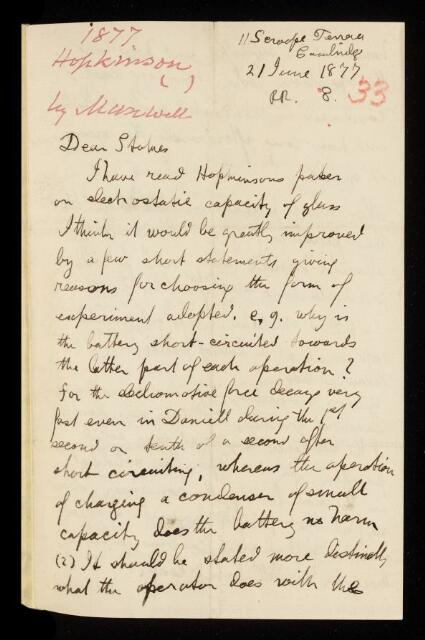 1877
Hopkinson
( )
by Maxwell
11 Scroope Terrace
Cambridge
21 June 1877
RR. 8. 33
Dear Stokes
I have read Hopkinsons paper
on electrostatic capacity of glass
I think it would be greatly improved
by a few short statements giving
reasons for choosing the form of
experiment adopted. e, g. why is
the battery short-circuited towards
the latter part of each operation?
For the electromotive force decays very
fast even in Daniell during the 1st
second or tenth of a second after
short circuiting, whereas the operation
of charging a condenser of small
capacity does the battery no harm
(2) It should be stated more distinctly
what the operator does with the